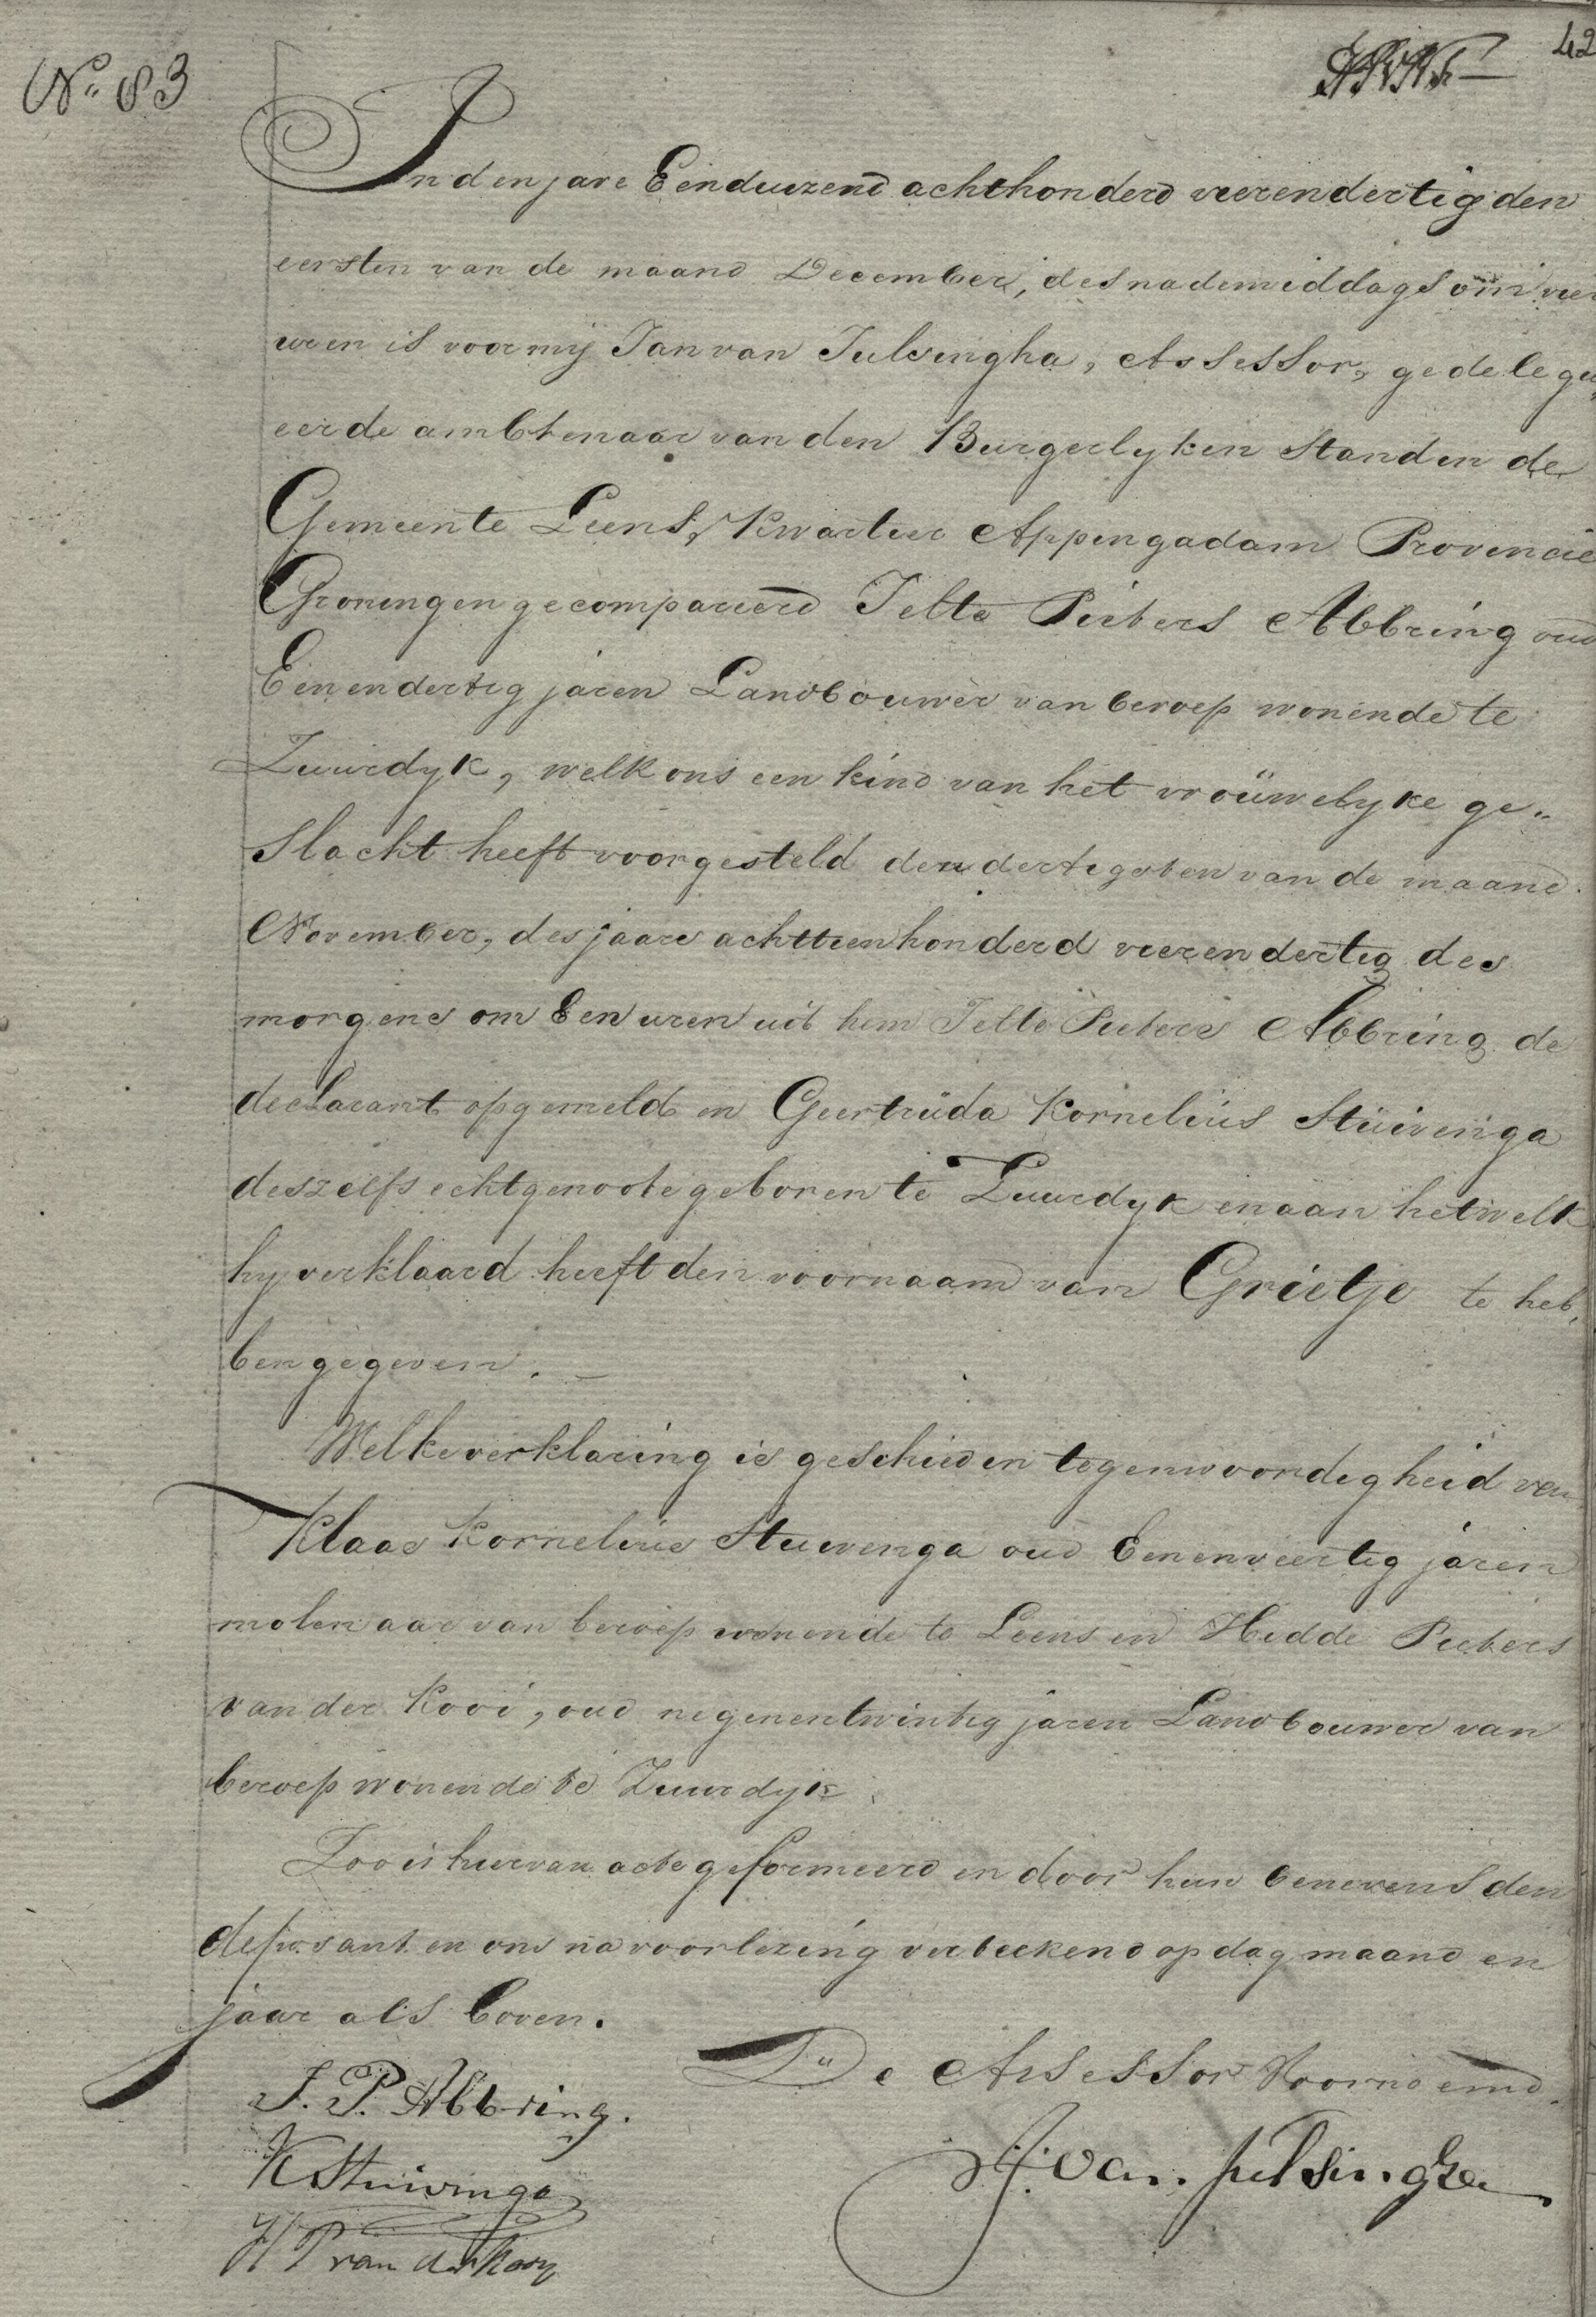 No 83
42
In den jare Eenduizend achthonderd vierendertig den
eersten van de maand December, des nademiddags om vier
uren is voor mij Jan van Julsingha, Assessor, gedelegu„
eerde ambtenaar van den Burgerlyken Stand in de
Gemeente Leens, Kwartier Appengadam Provincie
Groningen gecompareerd Jelte Pieters Abbring oud
Eenendertig jaren Landbouwer van beroep wonende te
Zuurdyk, welk ons een kind van het vrouwelyke ge„
slacht heeft voorgesteld den dertigsten van de maand
November, des jaars achttienhonderd vierendertig des
morgens om Een uren uit hem Jelte Pieters Abbring de
declarant opgemeld en Geertruda Kornelius Stuivinga
deszelfs echtgenoote geboren te Zuurdyk en aan hetwelk
hy verklaard heeft den voornaam van Grietje te heb„
ben gegeven.
Welke verklaring is geschied in tegenwoordigheid van
Klaas Kornelius Stuivenga oud Eenenveertig jaren
molenaar van beroep wonende te Leens en Hidde Pieters
van der Kooi, oud negenentwintig jaren Landbouwer van
beroep wonende te Zuurdyk.
Zoo is hiervan acte geformeerd en door hun benevens den
deposant en ons na voorlezing verteekend op dag maand en
jaar als boven.
De Assessor Voornoemd.
J. P. Abbring.
K Stuivinga
H P van der Kooy
J. van Julsingha